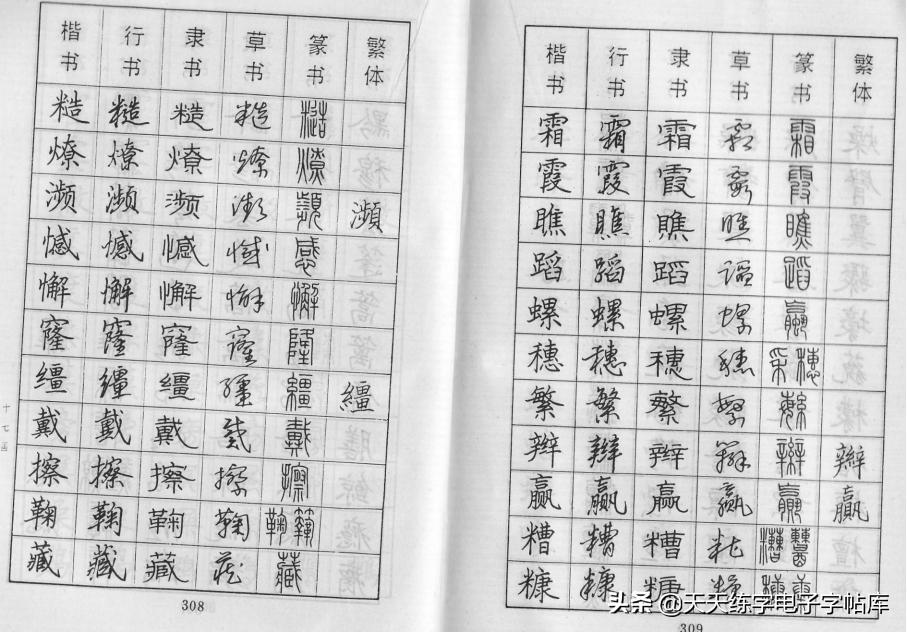 楷书 行书 隶书 草书 篆书 繁体
糙 糙 糙 糙 糙
燎 燎 燎 燎 燎
濒 濒 濒 濒 瀕 瀕
憾 憾 憾 憾 感
懈 懈 懈 懈 懈
窿 窿 窿 窿 隆
缰 缰 缰 缰 繮 繮
戴 戴 戴 戴 戴
擦 擦 擦 擦 擦
鞠 鞠 鞠 鞠 鞠
藏 藏 藏 藏 藏
308
十七画
楷书 行书 隶书 草书 篆书 繁体
霜 霜 霜 霜 霜
霞 霞 霞 霞 霞
瞧 瞧 瞧 瞧 瞧
蹈 蹈 蹈 蹈 蹈
螺 螺 螺 螺
穗 穗 穗 穗 采穗
繁 繁 繁 繁
辫 辫 辫 辫 辮 辮
赢 赢 赢 赢 贏 贏
糟 糟 糟 糟
糠 糠 糠 糠
309
头条 @天天练字电子字帖库